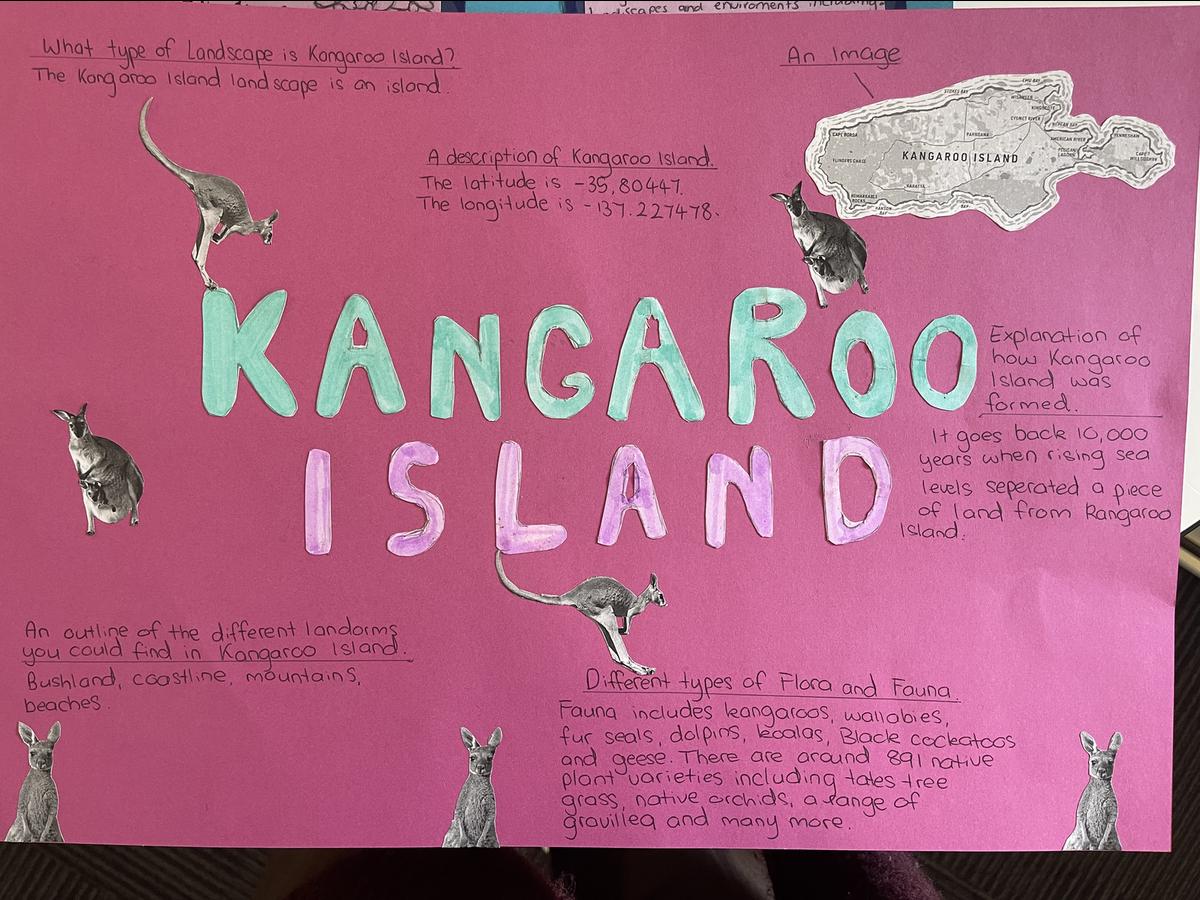 landscapes and enviroments including:
What type of Landscape is Kangaroo Island?
The Kangaroo Island landscape is an island.
An Image
A description of Kangaroo Island.
The latitude is -35,80447.
The longitude is -137.227478.
STOKES BAY
WISANGER
KINGSCOTE
CYGNET RIVER
NEPEAN BAY
CAPE BORDA
PARNDANA
AMERICAN RIVER
PENNESHAW
PELICAN
LAGOON
CAPE
WILLOUGHBY
FLINDERS CHASE
KANGAROO ISLAND
KARATTA
REMARKABLE
ROCKS
HANSON
BAY
VIVONNE
BAY
KANGAROO
ISLAND
Explanation of
how Kangaroo
Island was
formed.
It goes back 10,000
years when rising sea
levels seperated a piece
of land from Kangaroo
Island.
An outline of the different landorms
you could find in Kangaroo Island.
Bushland, coastline, mountains,
beaches.
Different types of Flora and Fauna.
Fauna includes kangaroos, wallabies,
fur seals, dolpins, koalas, Black cockatoos
and geese. There are around 891 native
plant varieties including tates tree
grass, native orchids, a range of
gravillea and many more.